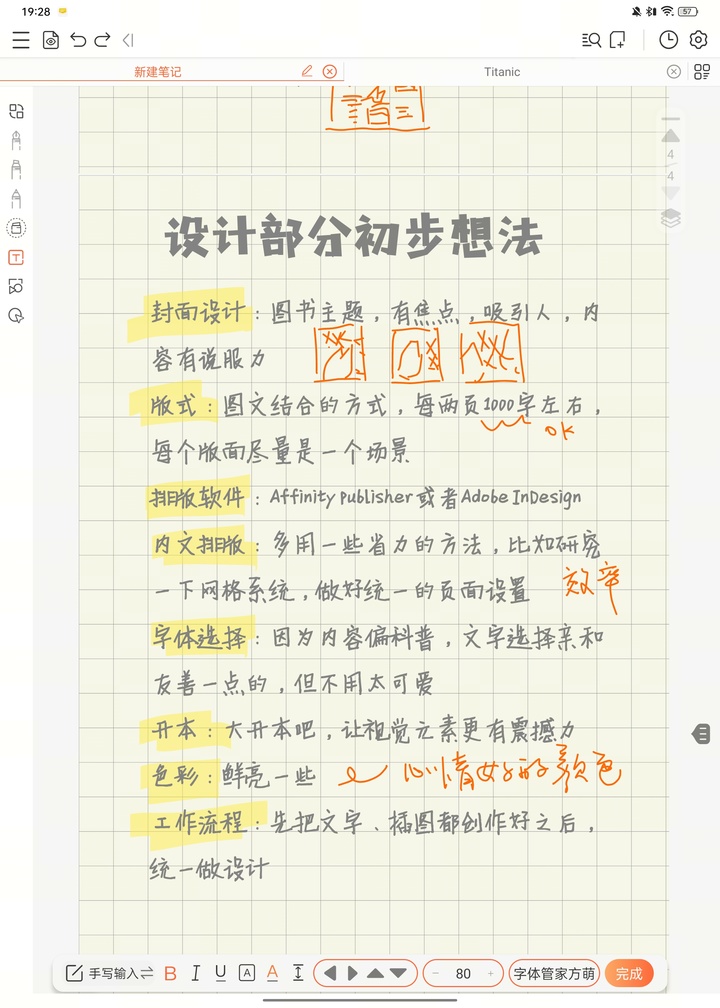 19:28
57
新建笔记
Titanic
4
4
设计部分初步想法
封面设计：图书主题，有焦点，吸引人，内
容有说服力
版式：图文结合的方式，每两页1000字左右，
OK
每个版面尽量是一个场景
排版软件：Affinity Publisher或者Adobe InDesign
内文排版：多用一些省力的方法，比如研究
一下网格系统，做好统一的页面设置
效率
字体选择：因为内容偏科普，文字选择亲和
友善一点的，但不用太可爱
开本：大开本吧，让视觉元素更有震撼力
色彩：鲜亮一些
心情好的颜色
工作流程：先把文字、插图都创作好之后，
统一做设计
手写输入
B I U A A
80
字体管家方萌
完成